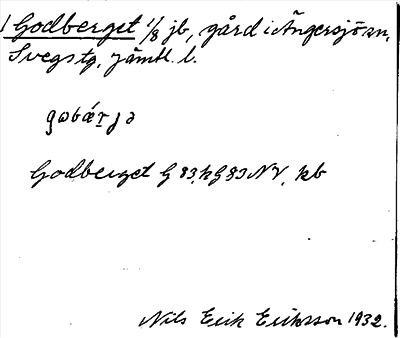 1 Godberget 1/8 jb, gård i Ängersjö sn,
Svegs tg, Jämtl. l.
gωbǽrjə
Godberget G 83, kG 83 NV, kb
Nils Erik Eriksson 1932.